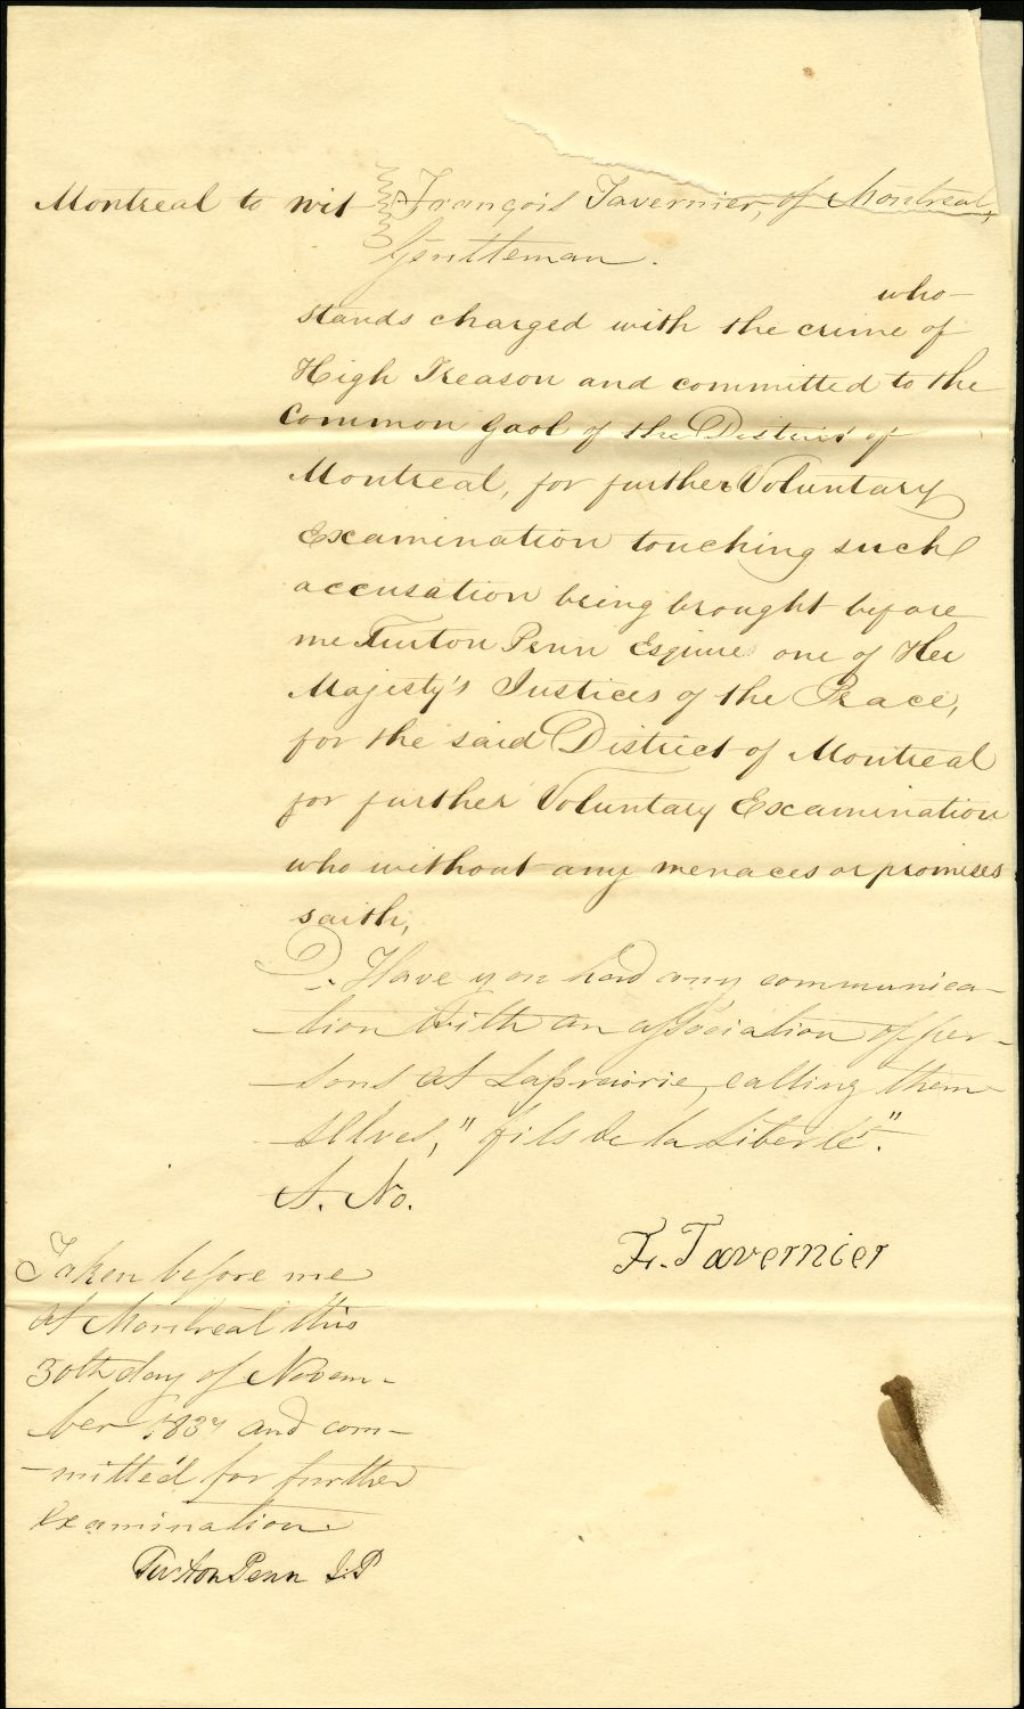 Montreal to wit François Tavernier, of Montreal,
Gentleman.
who
stands charged with the crime of
High Treason and committed to the
Common Gaol of the District of
Montreal, for further Voluntary
Examination touching such
accusation being brought before
me Turton Penn Esquire one of Her
Majesty's Justices of the Peace,
for the said District of Montreal
for further Voluntary Examination
who without any menaces or promises
saith,
Q. Have you had any communica-
-tion with an association of per-
-sons at Laprairie, calling them-
-selves, "fils de la Liberté".
A. No.
F. Tavernier
Taken before me
at Montreal this
30th day of Novem-
-ber 1837 and com-
-mitted for further
examination
Turton Penn J.P